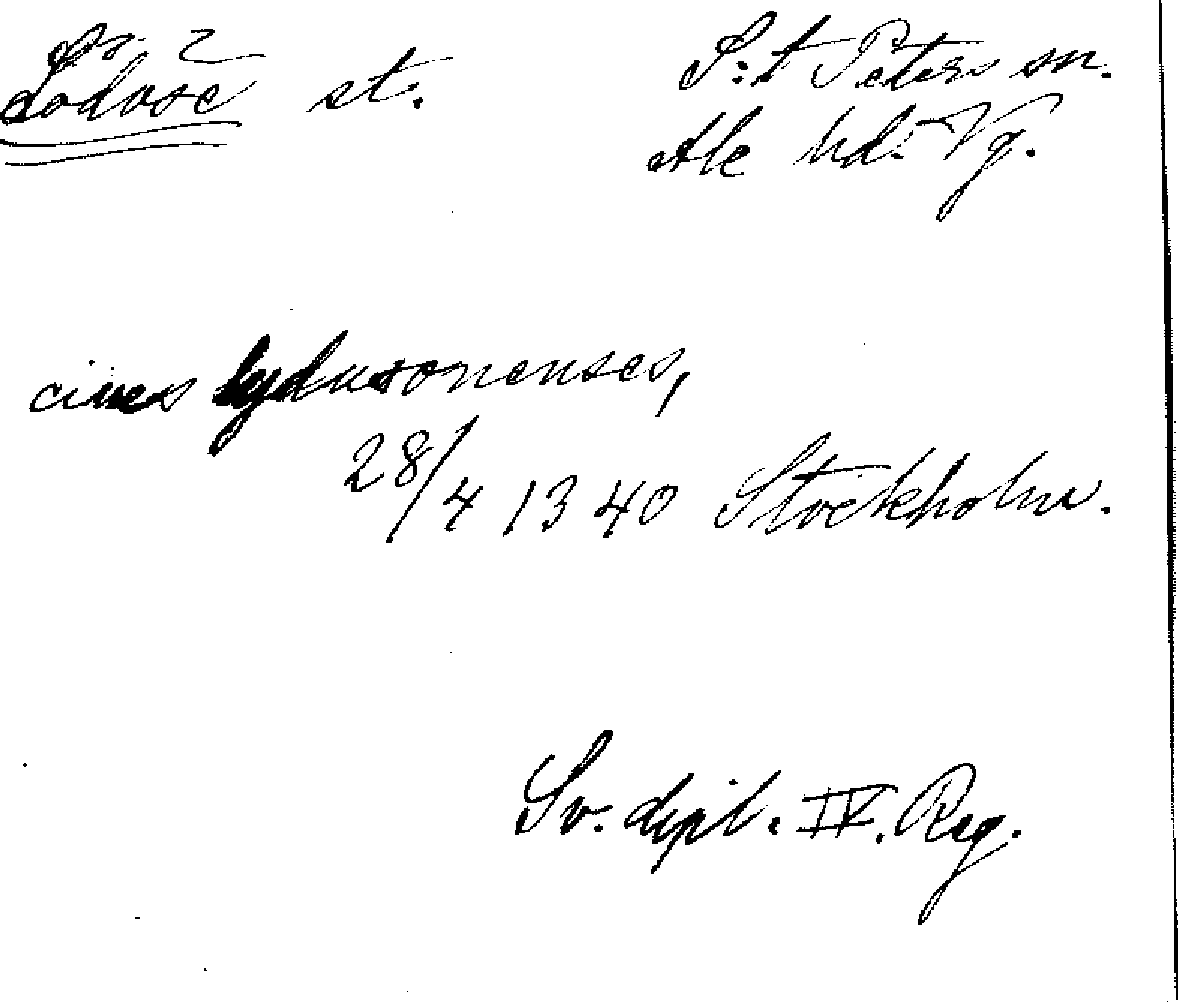 Lödöse st.
S:t Peters sn.
Ale hd. Vg.
cives lydusonenses,
28/4 1340 Stockholm.
Sv. dipl. IV. Reg.